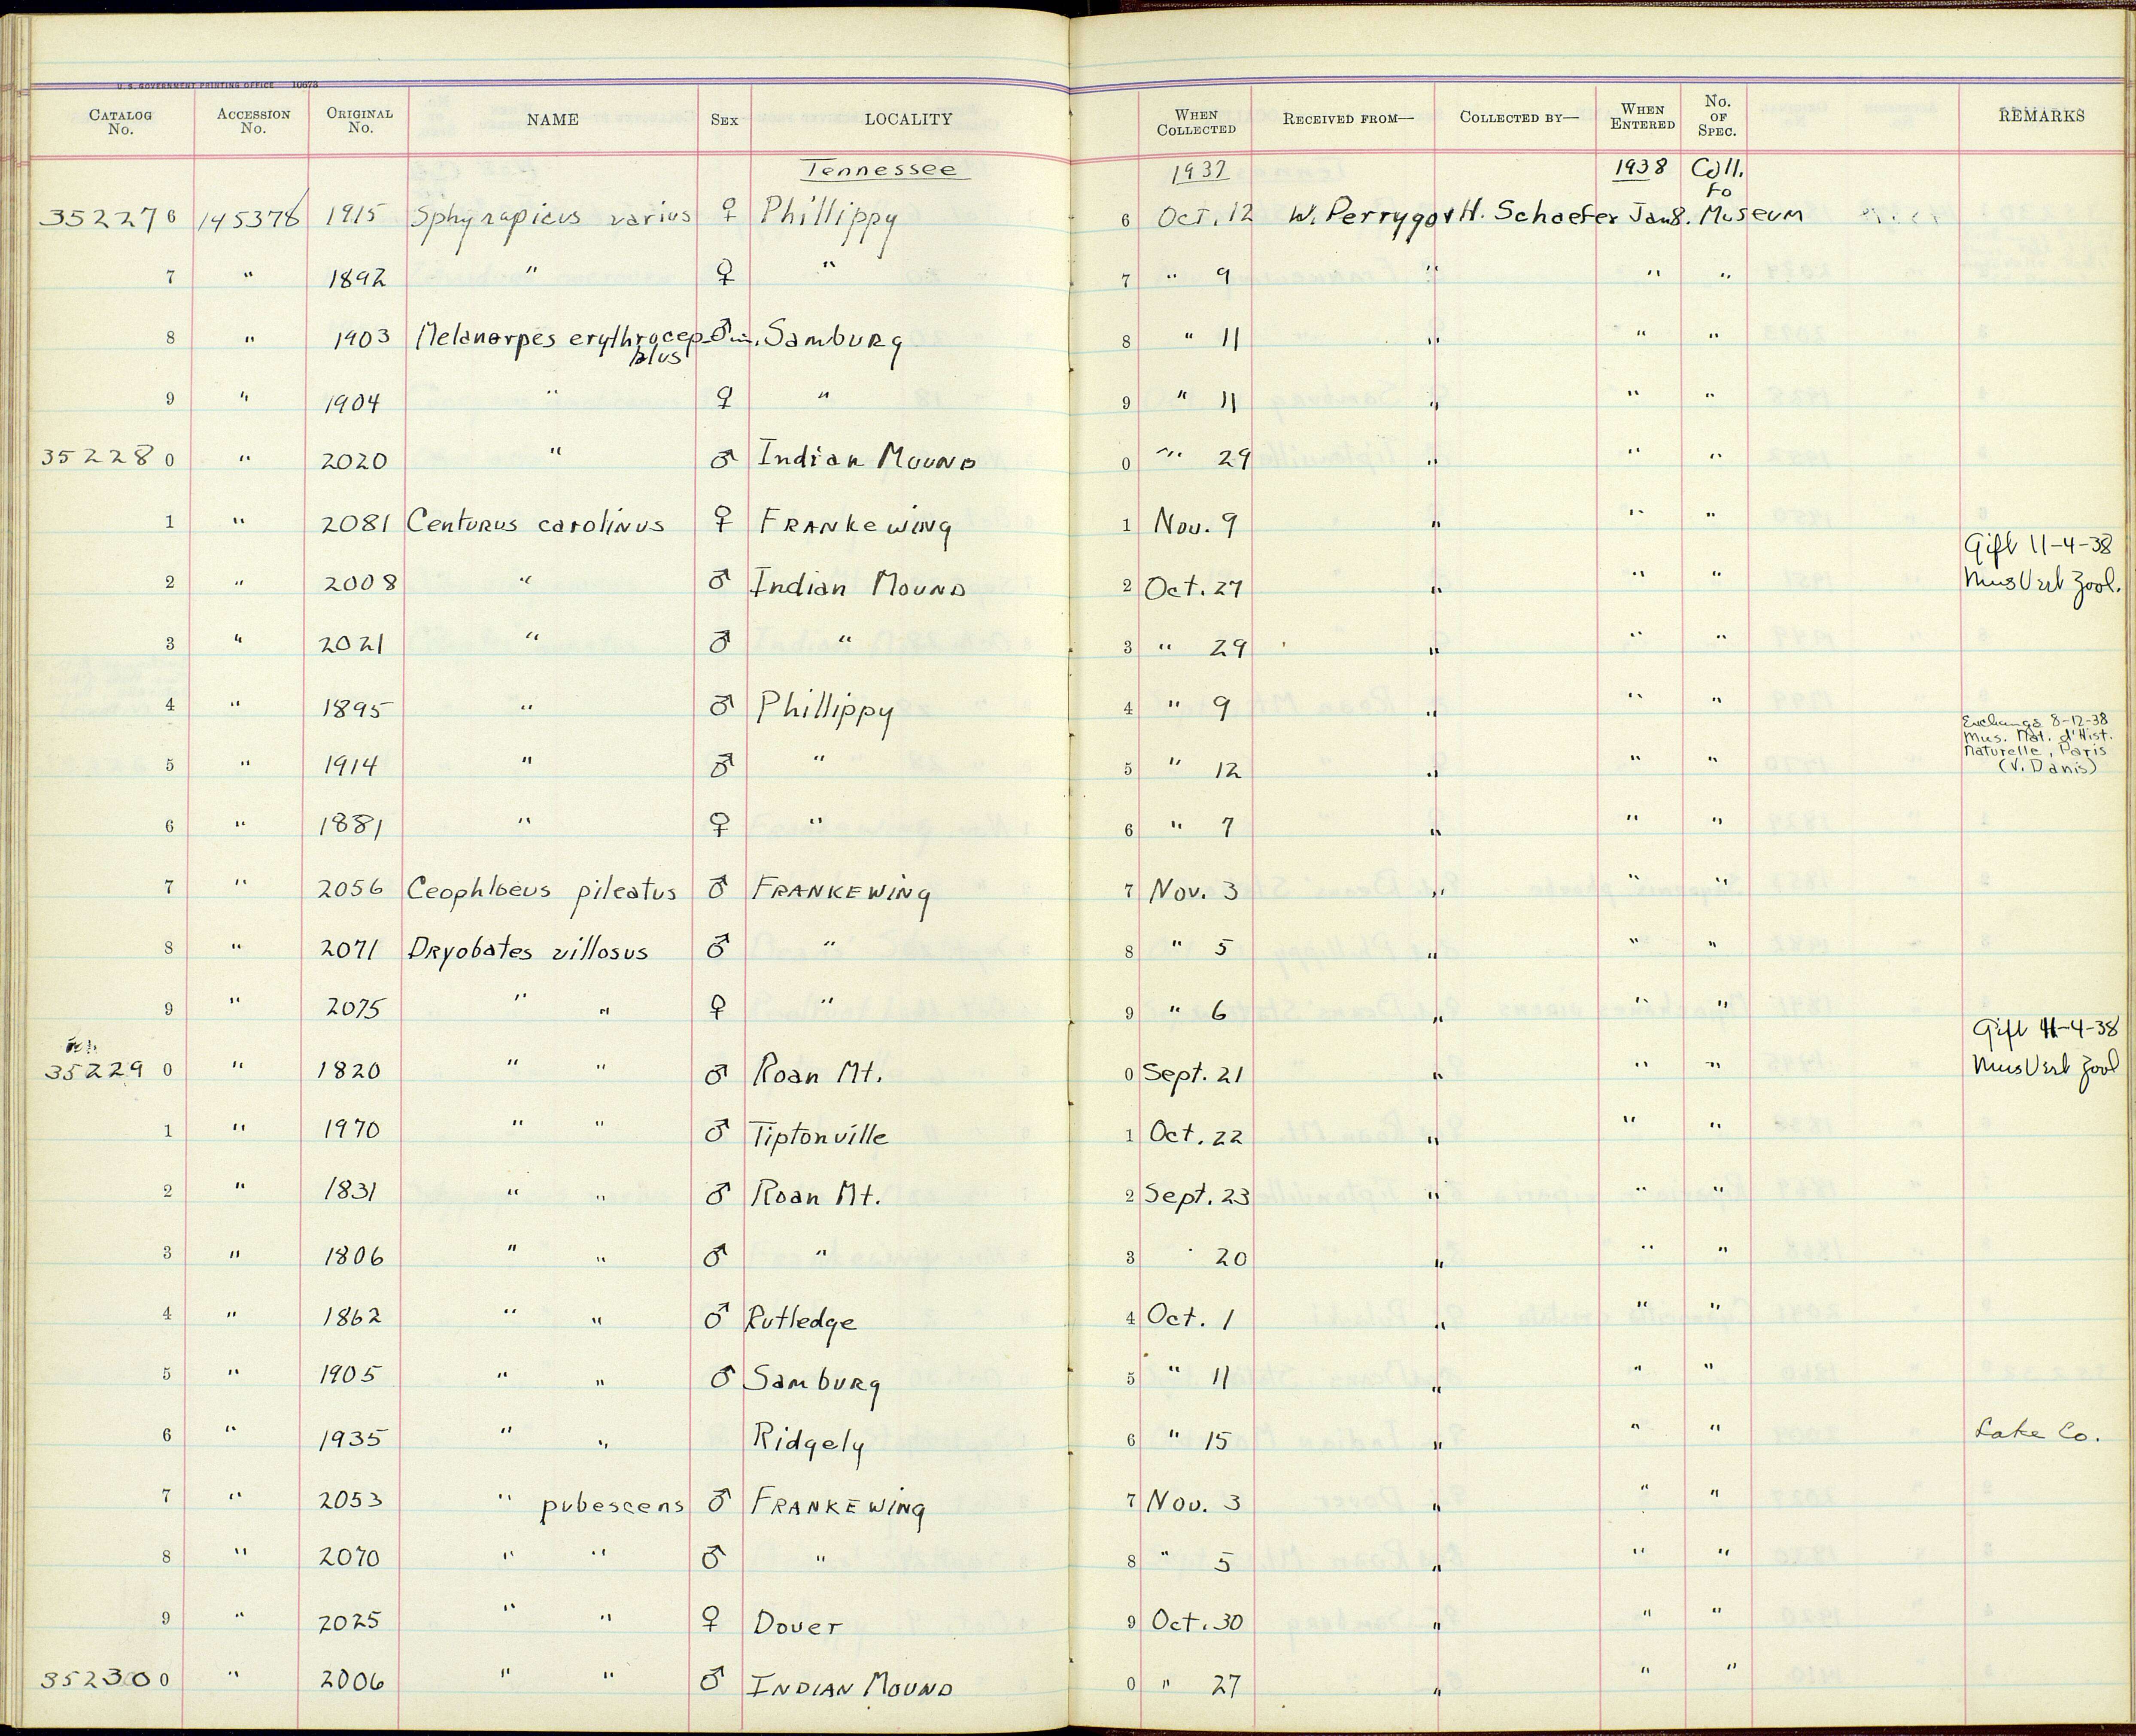 U. S. GOVERNMENT PRINTING OFFICE 10673
CATALOG No. ACCESSION No. ORIGINAL No. NAME SEX LOCALITY WHEN COLLECTED RECEIVED FROM— COLLECTED BY— WHEN ENTERED No. OF SPEC. REMARKS
Tennessee 1937 1938 Coll. to
352276 145378 1915 Sphyrapicus varius ♀ Phillippy 6 Oct. 12 W. Perrygo & H. Schaefer Jan 8. Museum
7 " 1892 " ♀ " 7 " 9 " " "
8 " 1903 Melanerpes erythrocep- ♂ im. Samburg 8 " 11 " " "
halus
9 " 1904 " ♀ " 9 " 11 " " "
352280 " 2020 " ♂ Indian Mound 0 " 29 " " "
1 " 2081 Centurus carolinus ♀ Frankewing 1 Nov. 9 " " "
Gift 11-4-38
2 " 2008 " ♂ Indian Mound 2 Oct. 27 " " " Mus Vert Zool.
3 " 2021 " ♂ " 3 " 29 " " "
4 " 1895 " ♂ Phillippy 4 " 9 " " "
Exchange 8-12-38
Mus. Nat. d'Hist.
Naturelle, Paris
5 " 1914 " ♂ " 5 " 12 " " " (V. Danis)
6 " 1881 " ♀ " 6 " 7 " " "
7 " 2056 Ceophloeus pileatus ♂ Frankewing 7 Nov. 3 " " "
8 " 2071 Dryobates villosus ♂ " 8 " 5 " " "
9 " 2075 " " ♀ " 9 " 6 " " "
Gift 11-4-38
352290 " 1820 " " ♂ Roan Mt. 0 Sept. 21 " " " Mus Vert Zool
1 " 1970 " " ♂ Tiptonville 1 Oct. 22 " " "
2 " 1831 " " ♂ Roan Mt. 2 Sept. 23 " " "
3 " 1806 " " ♂ " 3 " 20 " " "
4 " 1862 " " ♂ Rutledge 4 Oct. 1 " " "
5 " 1905 " " ♂ Samburg 5 " 11 " " "
6 " 1935 " " Ridgely 6 " 15 " " " Lake Co.
7 " 2053 " pubescens ♂ Frankewing 7 Nov. 3 " " "
8 " 2070 " " ♂ " 8 " 5 " " "
9 " 2025 " " ♀ Dover 9 Oct. 30 " " "
352300 " 2006 " " ♂ Indian Mound 0 " 27 " " "